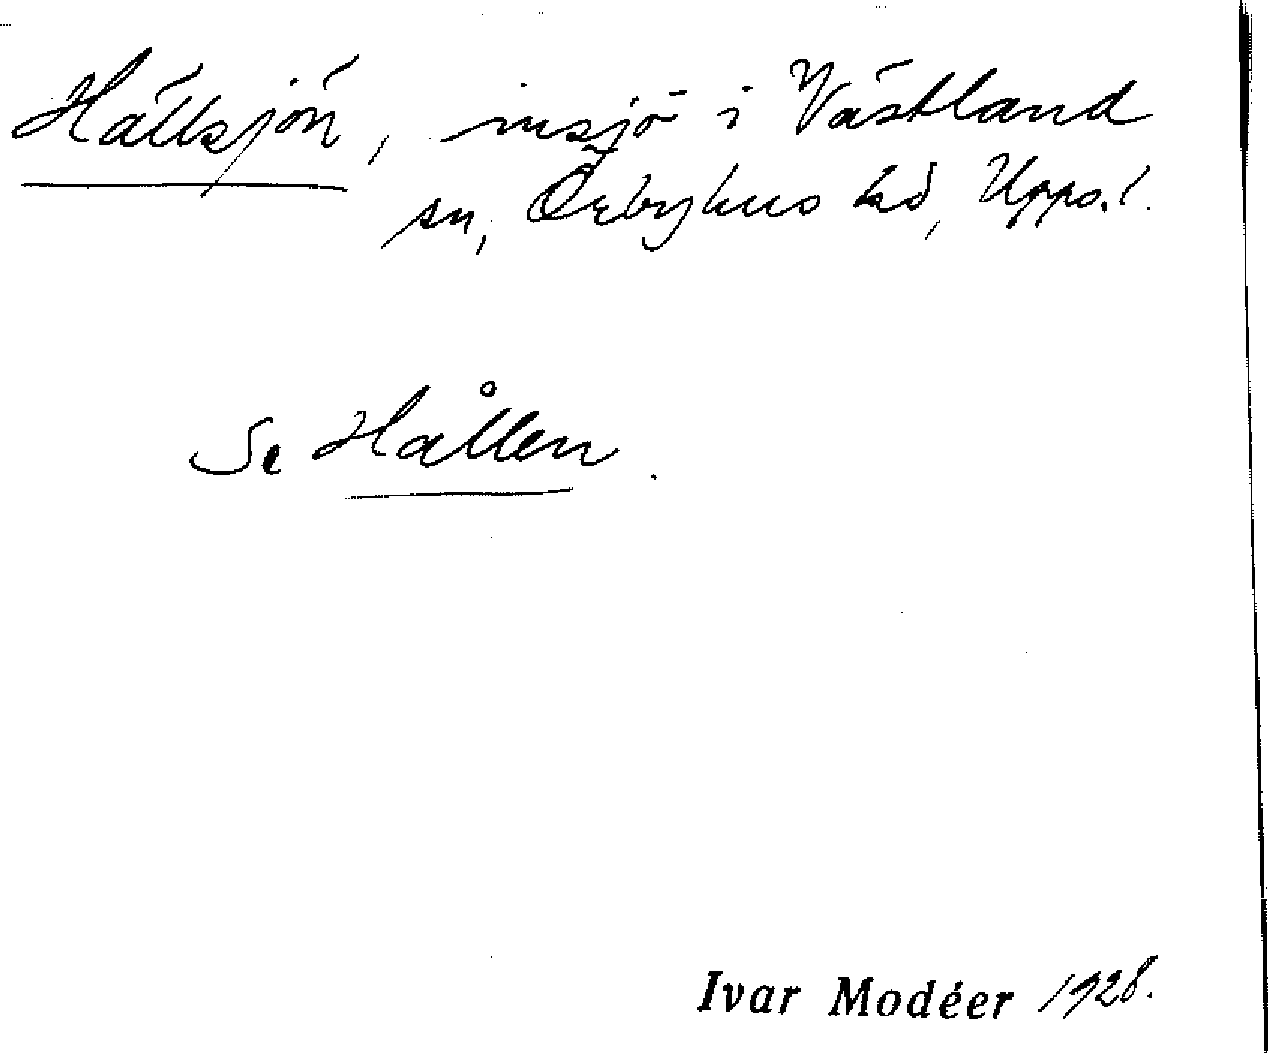 Hällsjön, insjö i Västland
sn, Örbyhus hd, Upps. l.
Se Hållen.
Ivar Modéer 1928.